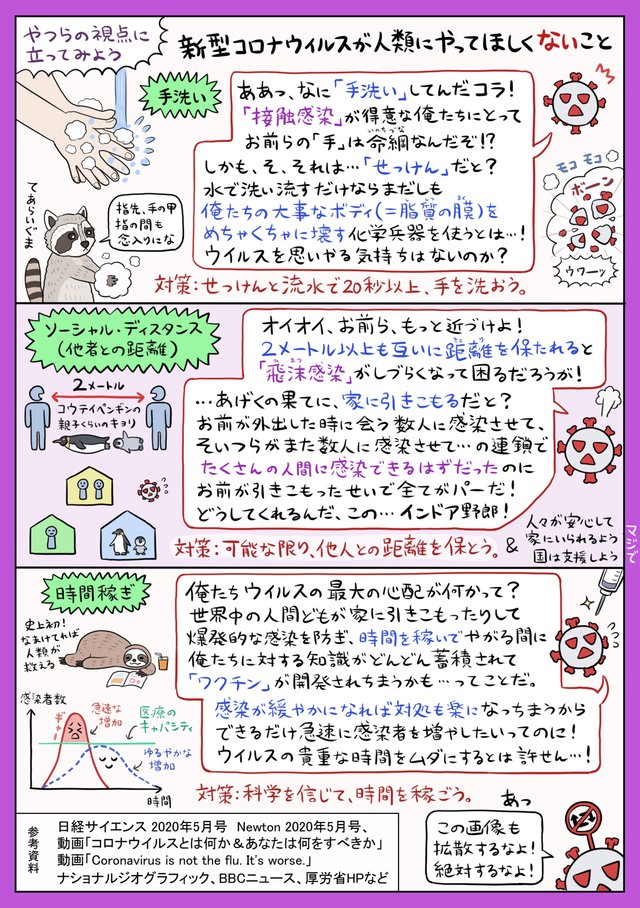 やつらの視点に
立ってみよう
新型コロナウイルスが人類にやってほしくないこと
手洗い
ああっ、なに「手洗い」してんだコラ！
「接触感染」が得意な俺たちにとって
お前らの「手」は命綱なんだぞ!?
いのちづな
しかも、そ、それは…「せっけん」だと？
水で洗い流すだけならまだしも
俺たちの大事なボディ(=脂質の膜)を
めちゃくちゃに壊す化学兵器を使うとは…！
ウイルスを思いやる気持ちはないのか？
モコ モコ
ボーン
ウワーッ
てあらいぐま
指先、手の甲
指の間も
念入りにな
対策：せっけんと流水で20秒以上、手を洗おう。
ソーシャル・ディスタンス
(他者との距離)
2メートル
コウテイペンギンの
親子くらいのキョリ
オイオイ、お前ら、もっと近づけよ！
2メートル以上も互いに距離を保たれると
「飛沫感染」がしづらくなって困るだろうが！
…あげくの果てに、家に引きこもるだと？
お前が外出した時に会う数人に感染させて、
そいつらがまた数人に感染させて…の連鎖で
たくさんの人間に感染できるはずだったのに
お前が引きこもったせいで全てがパーだ！
どうしてくれるんだ、この…インドア野郎！
対策：可能な限り、他人との距離を保とう。
&
人々が安心して
家にいられるよう
国は支援しよう
マジで
時間稼ぎ
史上初！
なまけてれば
人類が
救える
俺たちウイルスの最大の心配が何かって？
世界中の人間どもが家に引きこもったりして
爆発的な感染を防ぎ、時間を稼いでやがる間に
俺たちに対する知識がどんどん蓄積されて
「ワクチン」が開発されちまうかも…ってことだ。
感染が緩やかになれば対処も楽になっちまうから
できるだけ急速に感染者を増やしたいってのに！
ウイルスの貴重な時間をムダにするとは許せん…！
感染者数
急速な
増加
医療の
キャパシティ
ゆるやかな
増加
時間
対策：科学を信じて、時間を稼ごう。
参考資料
日経サイエンス 2020年5月号 Newton 2020年5月号、
動画「コロナウイルスとは何か＆あなたは何をすべきか」
動画「Coronavirus is not the flu. It's worse.」
ナショナルジオグラフィック、BBCニュース、厚労省HPなど
あっ
この画像も
拡散するなよ！
絶対するなよ！